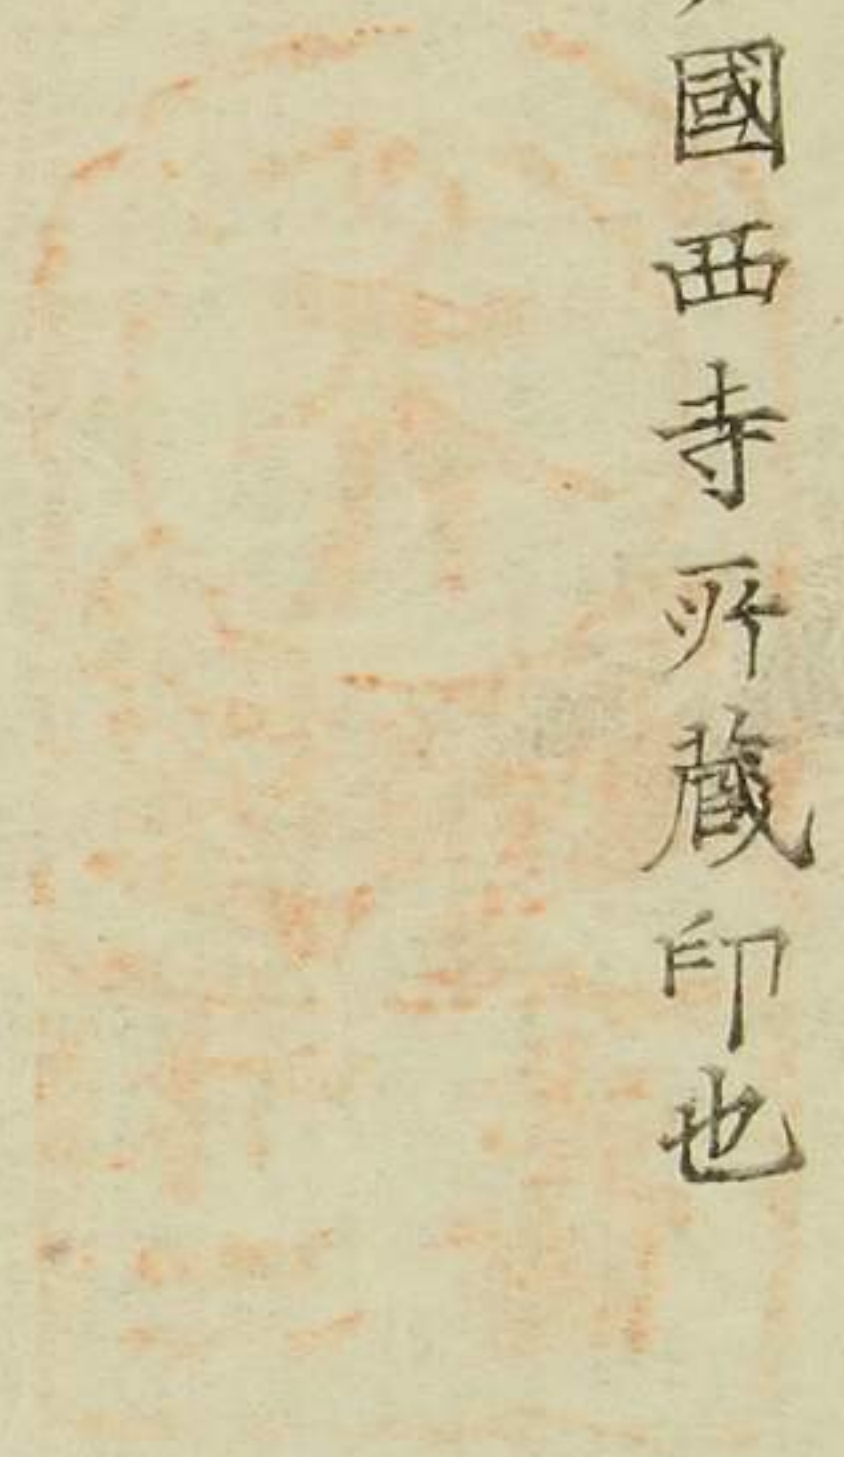 國西寺所蔵印也